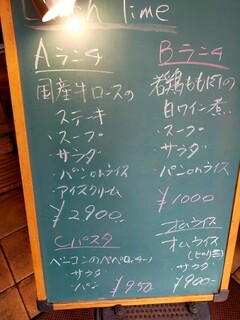 Lunch Time
Aランチ
国産牛ロースの
ステーキ
・スープ
・サラダ
・パンorライス
・アイスクリーム
¥2900
Cパスタ
ベーコンのペペロンチーノ
サラダ
パン ¥950
Bランチ
若鶏もも肉の
白ワイン煮
・スープ
・サラダ
・パンorライス
¥1000
オムライス
オムライス
サラダ
¥900